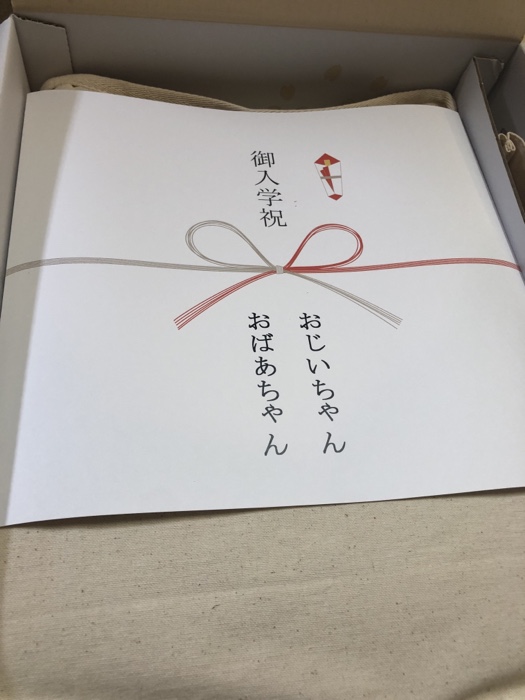 御入学祝
おじいちゃん
おばあちゃん